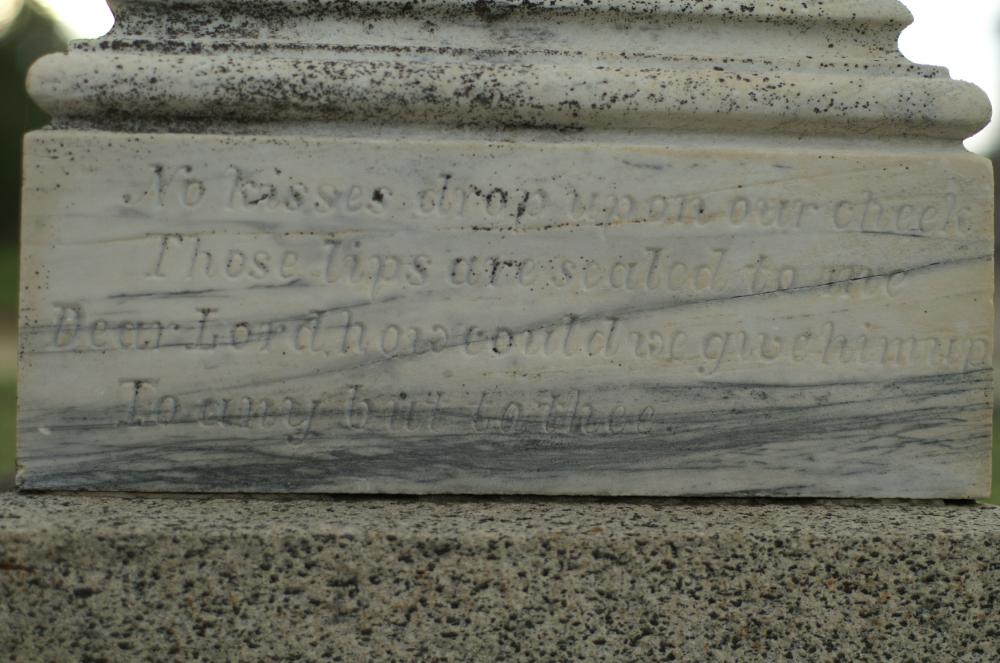 No kisses drop upon our cheek
Those lips are sealed to me
Dear Lord how could we give him up
To any but to thee.